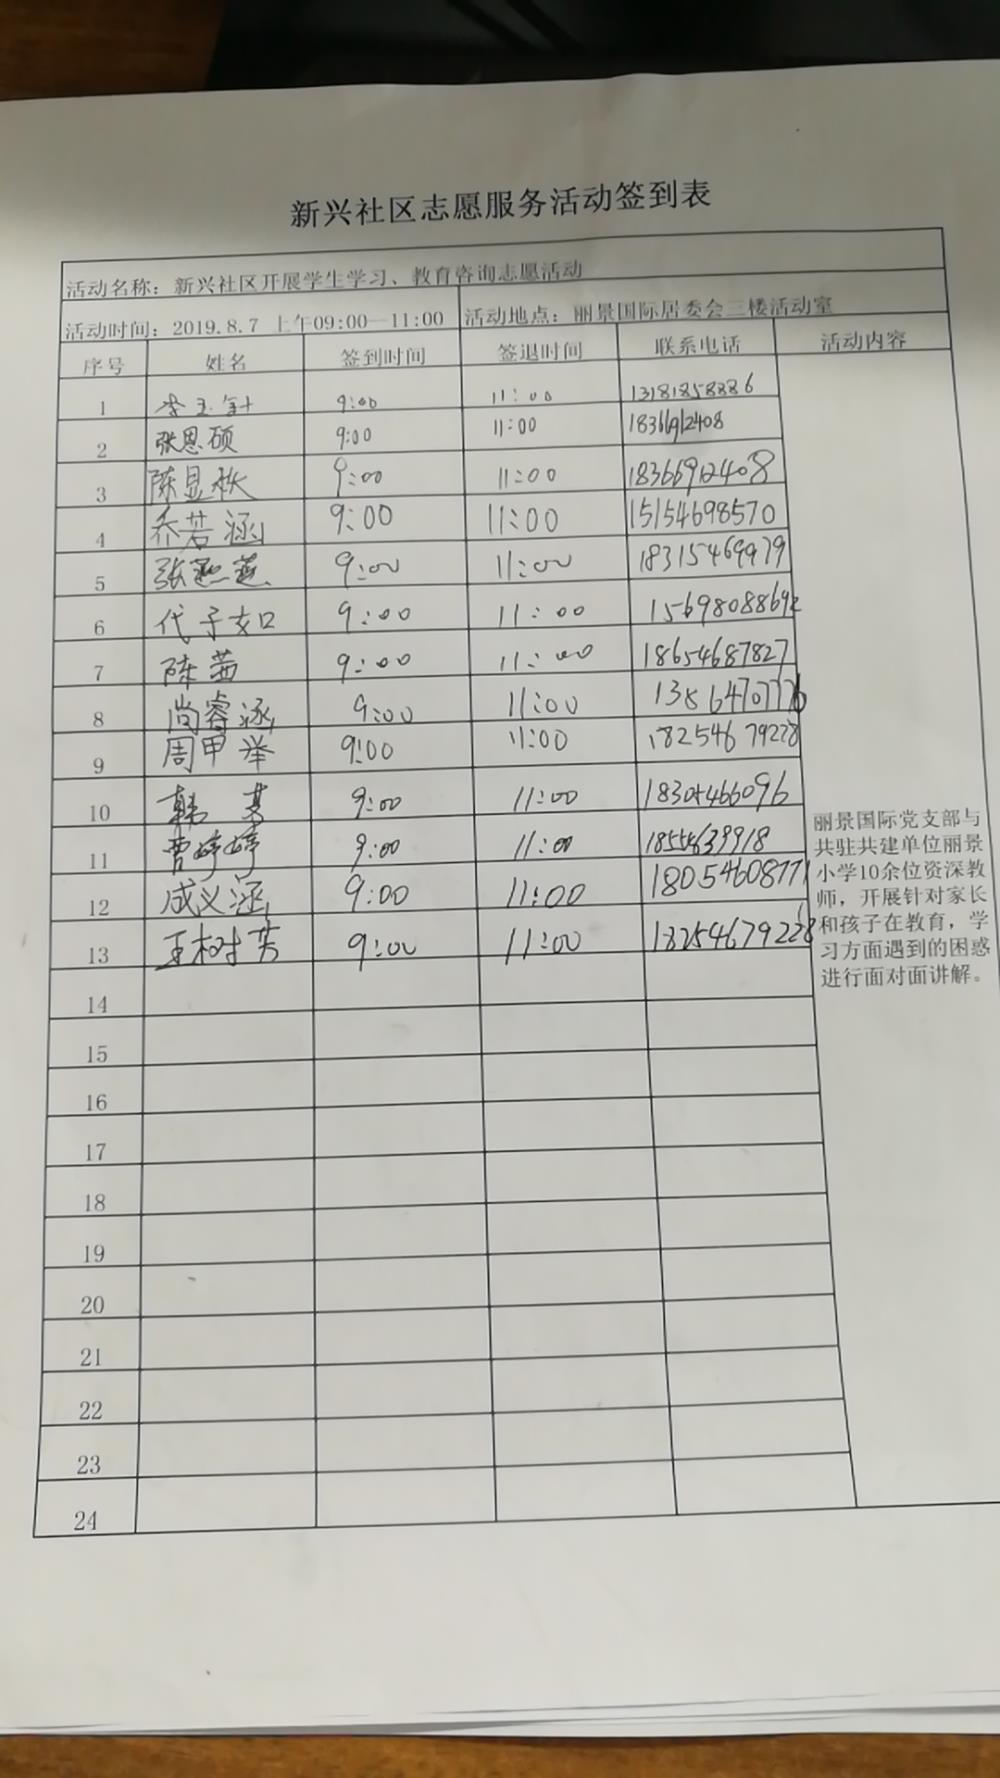 新兴社区志愿服务活动签到表
活动名称：新兴社区开展学生学习、教育咨询志愿活动
活动时间：2019.8.7 上午09:00—11:00 活动地点：丽景国际居委会三楼活动室
序号 姓名 签到时间 签退时间 联系电话 活动内容
1 9:00 11:00 13181858886
2 张恩硕 9:00 11:00 18366912408
3 陈显 9:00 11:00 18366912408
4 乔若涵 9:00 11:00 15154698570
5 张燕燕 9:00 11:00 18315469979
6 代子如 9:00 11:00 15698088692
7 陈茜 9:00 11:00 18654687827
8 尚睿涵 9:00 11:00
9 周甲举 9:00 11:00 18254679228
10 韩 9:00 11:00
11 曹婷婷 9:00 11:00
12 成义涵 9:00 11:00 18054608771
13 王树芳 9:00 11:00 18254679228
丽景国际党支部与
共驻共建单位丽景
小学10余位资深教
师，开展针对家长
和孩子在教育，学
习方面遇到的困惑
进行面对面讲解。
14
15
16
17
18
19
20
21
22
23
24